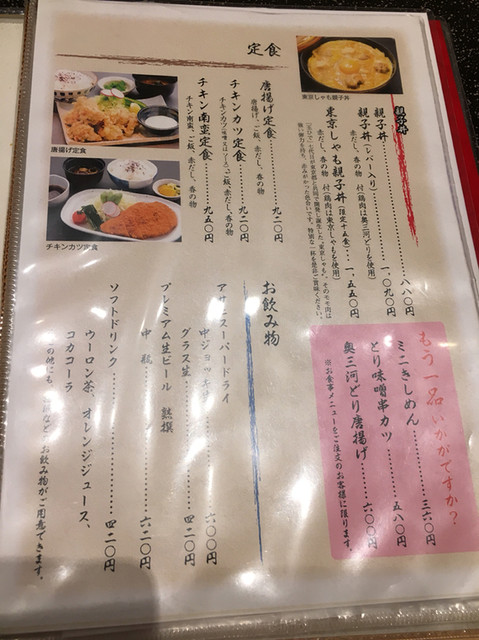 東京しゃも親子丼
親子丼
親子丼……八八〇円
赤だし、香の物 付(鶏肉は奥三河どりを使用)
親子丼(レバー入り)……一、〇九〇円
東京しゃも親子丼(限定十五食)……一、五五〇円
赤だし、香の物 付(鶏肉は東京しゃもを使用)
定食
唐揚げ定食……九二〇円
唐揚げ、ご飯、赤だし、香の物
チキンカツ定食……九二〇円
ご飯、赤だし、香の物
チキン南蛮定食……九五〇円
チキン南蛮、ご飯、赤だし、香の物
唐揚げ定食
チキンカツ定食
もう一品いかがですか?
ミニきしめん……三六〇円
とり味噌串カツ……五八〇円
奥三河どり唐揚げ……六〇〇円
※お食事メニューをご注文のお客様に限ります。
お飲み物
アサヒスーパードライ
中ジョッキ……六〇〇円
グラス生……四二〇円
プレミアム生ビール 熟撰
中瓶……六二〇円
ソフトドリンク……四二〇円
ウーロン茶、オレンジジュース、
コカコーラ
お飲み物がご用意できます。